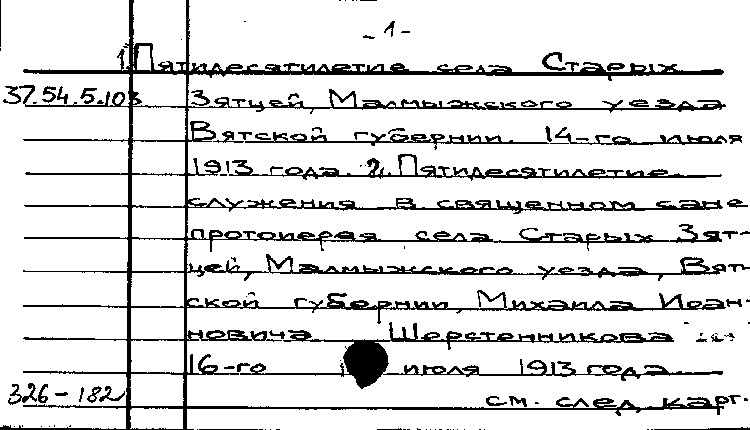 -1-
1. Пятидесятилетие села Старых
37.54.5.103 Зятцей, Малмыжского уезда
Вятской губернии. 14-го июля
1913 года. 2. Пятидесятилетие
служения в священном сане
протоиерея села Старых Зят-
цей, Малмыжского уезда, Вят-
ской губернии, Михаила Иоан-
новича Шерстенникова
16-го июля 1913 года
326-182 см. след. карт.